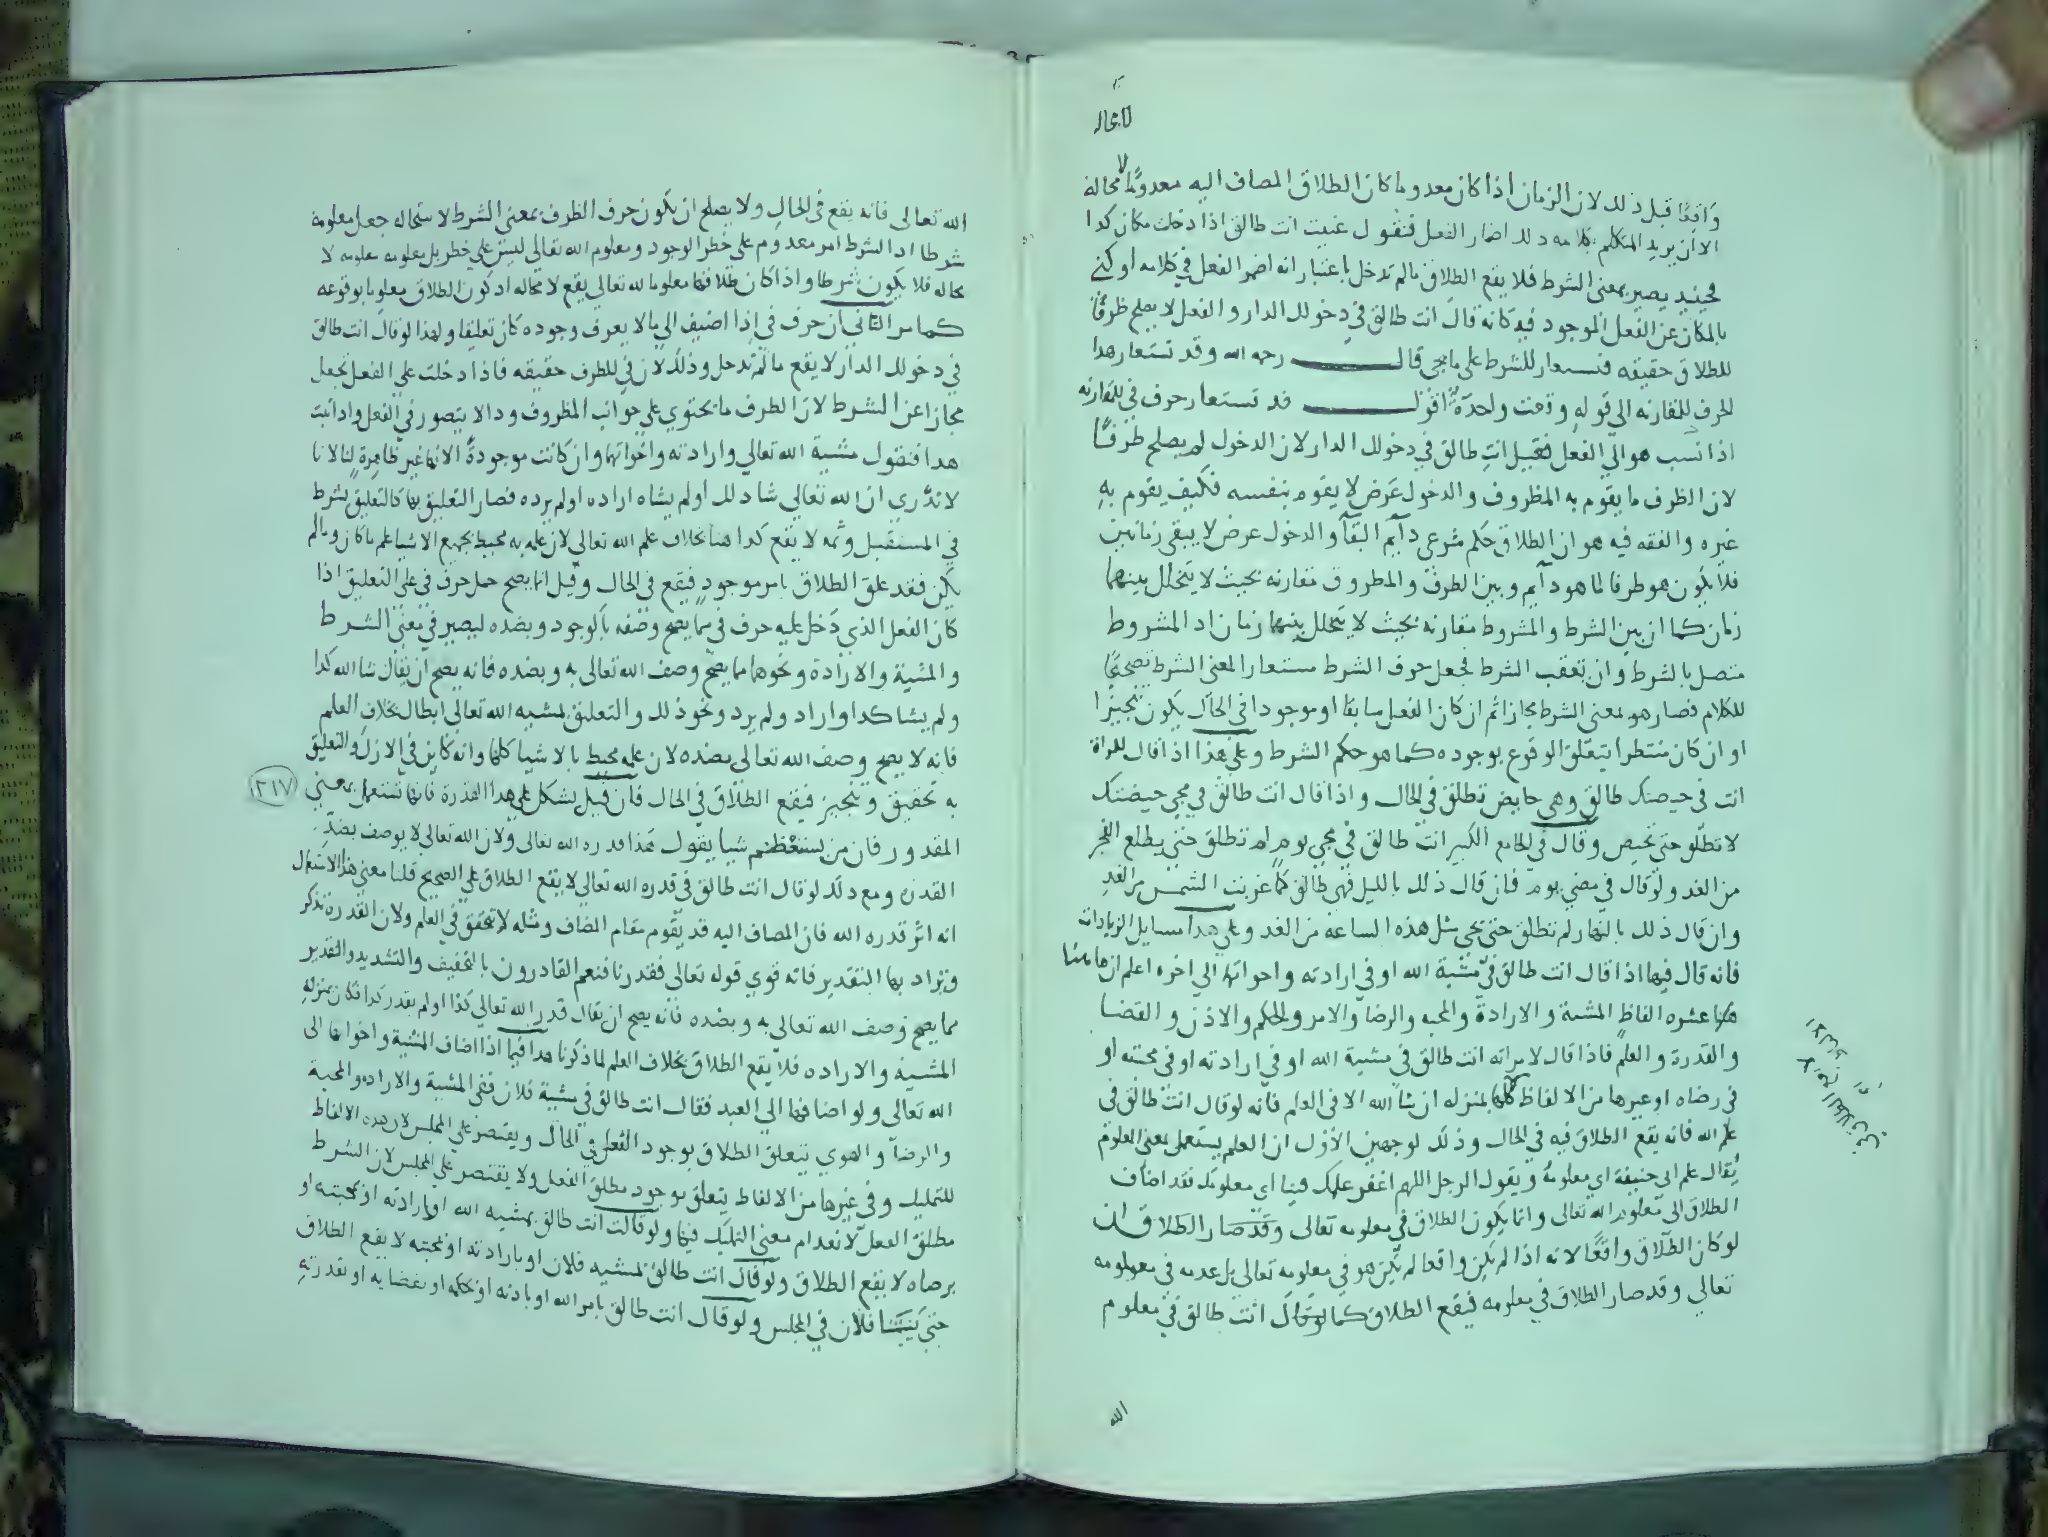 لا محالة
واقعًا قبل ذلك لان الزمان اذا كان معدوما كان الطلاق المضاف اليه معدومًا لا محالة
الا ان يريد المتكلم بكلامه ذلك اضمار الفعل فنقول عنيت انت طالق اذا دخلت مكان كدا
فحينيد يصير بمعنى الشرط فلا يقع الطلاق مالم تدخل باعتبار انه اضمر الفعل في كلامه او كنى
بالمكان عن الفعل الموجود فيه كانه قال انت طالق في دخولك الدار و الفعل لا يصلح ظرفًا
للطلاق حقيقه فتستعار للشرط على ما يجي قال رحمه الله وقد تستعار هدا
الحرف للمقارنه الى قوله وقعت واحدة اقول قد تستعار حرف في للمقارنه
اذا نسب هو الي الفعل فقيل انت طالق في دخولك الدار لان الدخول لم يصلح ظرفًا
لان الظرف ما يقوم به المظروف والدخول عرض لا يقوم بنفسه فكيف يقوم به
غيره والفقه فيه هو ان الطلاق حكم شرعي دآيم البقآ و الدخول عرض لا يبقى زمانين
فلا يكون هو ظرفا لما هو دآيم و بين الظرف والمظروف مقارنه بحيث لا يتخلل بينهما
زمان كما ان بين الشرط والمشروط مقارنه بحيث لا يتخلل بينهما زمان اد المشروط
متصل بالشرط وان تعقب الشرط فجعل حرف الشرط مستعار المعنى الشرط تصحيحًا
للكلام فصار هو لمعنى الشرط مجازا ثم ان كان الفعل سابقا او موجودا في الحال يكون تنجيزا
او ان كان منتظرا يتعلق الوقوع بوجوده كما هو حكم الشرط وعلى هذا اذا قال للمراة
انت في حيضتك طالق وهي حايض تطلق في الحال و اذا قال انت طالق في مجي حيضتك
لا تطلق حتى تحيض وقال في الجامع الكبير انت طالق في مجي يوم لم تطلق حتى يطلع الفجر
من الغد ولو قال في مضي يوم فان قال ذلك بالليل فهي طالق كما غربت الشمس من الغد
وان قال ذلك بالنهار لم تطلق حتى تجي مثل هذه الساعة من الغد وعلي هدا مسايل الزيادات
فانه قال فيها اذا قال انت طالق في مشية الله او في ارادته واخواتها الى اخره اعلم ان هاهنا
عشره الفاظ المشية و الارادة والمحبه والرضا والامر والحكم والاذن و القضا
والقدرة والعلم فاذا قال لامراته انت طالق في مشية الله او في ارادته او في محبته او
في رضاه او غيرها من الالفاظ كلها بمنزله ان شا الله الا في العلم فانه لو قال انت طالق في
علم الله فانه يقع الطلاق فيه في الحال وذلك لوجهين الاول ان العلم يستعمل بمعنى المعلوم
يقال علم ابي حنيفة اي معلومه ويقول الرجل اللهم اغفر علمك فينا اي معلومك فقد اضاف
الطلاق الى معلوم الله تعالى وانما يكون الطلاق في معلومه تعالى وقد صار الطلاق ان
لو كان الطلاق واقعًا لانه اذا لم يكن واقعا لم يكن هو في معلومه تعالى بل عدمه في معلومه
تعالى وقد صار الطلاق في معلومه فيقع الطلاق كما لو قال انت طالق في معلوم
الله
الله تعالى فانه يقع في الحال ولا يصلح ان يكون حرف الظرف بمعنى الشرط لاستحاله جعل معلومه
شرطا اد الشرط امر معدوم على خطر الوجود ومعلوم الله تعالى ليس على خطر بل معلومه معلومه لا
محاله فلا يكون شرطا و اذا كان طلاقها معلوما لله تعالى يقع لا محاله اد كون الطلاق معلوما بوقوعه
كما مر الثاني ان حرف في اذا اضيف الى ما لا يعرف وجوده كان تعليقا ولهذا لو قال انت طالق
في دخولك الدار لا يقع ما لم تدخل وذلك لان في للظرف حقيقه فاذا دخلت على الفعل تجعل
مجازا عن الشرط لان الظرف ما يحتوي على جوانب المظروف ودا لا يتصور في الفعل وادا ثبت
هدا فنقول مشية الله تعالى وارادته واخواتها وان كانت موجودة الا انها غير ظاهرة لنا لانا
لا ندري ان الله تعالى شا ذلك او لم يشاه اراده اولم يرده فصار التعليق بها كالتعليق بشرط
في المستقبل وثمه لا يقع كدا هنا بخلاف علم الله تعالى لان علمه به محيط بجميع الاشيا علم ما كان ومالم
يكن فقد علق الطلاق بامر موجود فيقع في الحال وقيل انما يصح حمل حرف في على التعليق اذا
كان الفعل الذي دخل عليه حرف في مما يصح وصفه بالوجود وبضده ليصير في معنى الشرط
والمشية والارادة ونحوهما مما يصح وصف الله تعالى به و بضده فانه يصح ان يقال شا الله كدا
ولم يشا كدا واراد ولم يرد ونحو ذلك والتعليق بمشيه الله تعالى ابطال بخلاف العلم
فانه لا يصح وصف الله تعالى بضده لان علمه محيط بالاشيا كلها وانه كاين في الازل والتعليق
به تحقيق وتنجيز فيقع الطلاق في الحال فان قيل يشكل على هدا القدرة فانها تستعمل بمعنى
(٣١٧)
المقدور فان من يستعظم شيا يقول هذا قدره الله تعالى ولان الله تعالى لا يوصف بضد
القدره ومع ذلك لو قال انت طالق في قدره الله تعالى لا يقع الطلاق على الصحيح قلنا معنى هذا الاستعمال
انه اثر قدره الله فان المضاف اليه قد يقوم مقام المضاف ومثله لا يتحقق في العلم ولان القدره تذكر
ويراد بها التقدير فانه قوي قوله تعالى فقدرنا فنعم القادرون بالتخفيف والتشديد والتقدير
مما يصح وصف الله تعالى به وبضده فانه يصح ان يقال قدر الله تعالى كذا اولم يقدر كدا فكان بمنزله
المشيه والاراده فلا يقع الطلاق بخلاف العلم لما ذكرنا هدا فيما اذا اضاف المشية واخواتها الى
الله تعالى ولو اضافها الى العبد فقال انت طالق في مشية فلان ففي المشية والاراده والمحبة
والرضآ والهوي يتعلق الطلاق بوجود الفعل في الحال ويقتصر على المجلس لان هده الالفاظ
للتمليك وفي غيرها من الالفاظ يتعلق بوجود مطلق الفعل ولا يقتصر على المجلس لان الشرط
مطلق الفعل لانعدام معنى التمليك فيها ولو قالت انت طالق بمشيه الله او بارادته او بمحبته او
برضاه لا يقع الطلاق ولو قال انت طالق بمشيه فلان او بارادته او بمحبته لا يقع الطلاق
حتى يشا فلان في المجلس ولو قال انت طالق بامر الله او باذنه او بحكمه او بقضايه او بقدرته